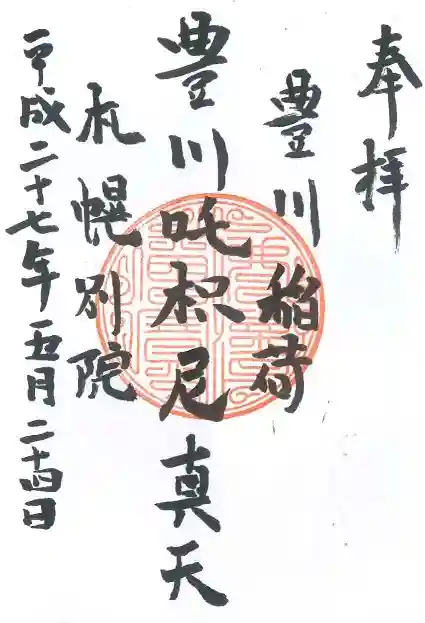 奉拝
豊川稲荷
豊川吒枳尼真天
札幌別院
平成二十七年五月二十四日